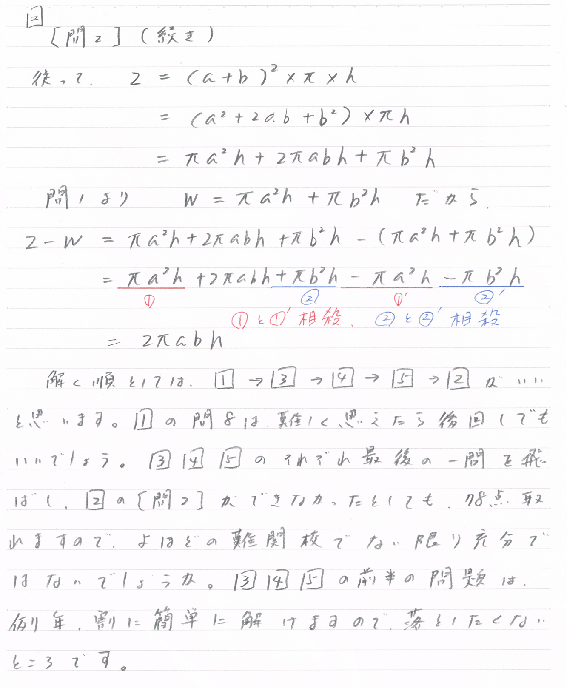 2
[問2](続き)
従って、 Z = (a+b)²×π×h
= (a²+2ab+b²)×πh
= πa²h+2πabh+πb²h
問1より W = πa²h+πb²h だから、
Z-W = πa²h+2πabh+πb²h-(πa²h+πb²h)
= πa²h+2πabh+πb²h-πa²h-πb²h
① ② ①' ②'
①と①'相殺、 ②と②'相殺
= 2πabh
解く順としては、1→3→4→5→2がいい
と思います。1の問8は難しく思えたら後回しでも
いいでしょう。345のそれぞれ最後の一問を飛
ばし、2の[問2]ができなかったとしても、78点取
れますので、よほどの難関校でない限り充分で
はないでしょうか。345の前半の問題は、
例年、割に簡単に解けますので、落としたくない
ところです。